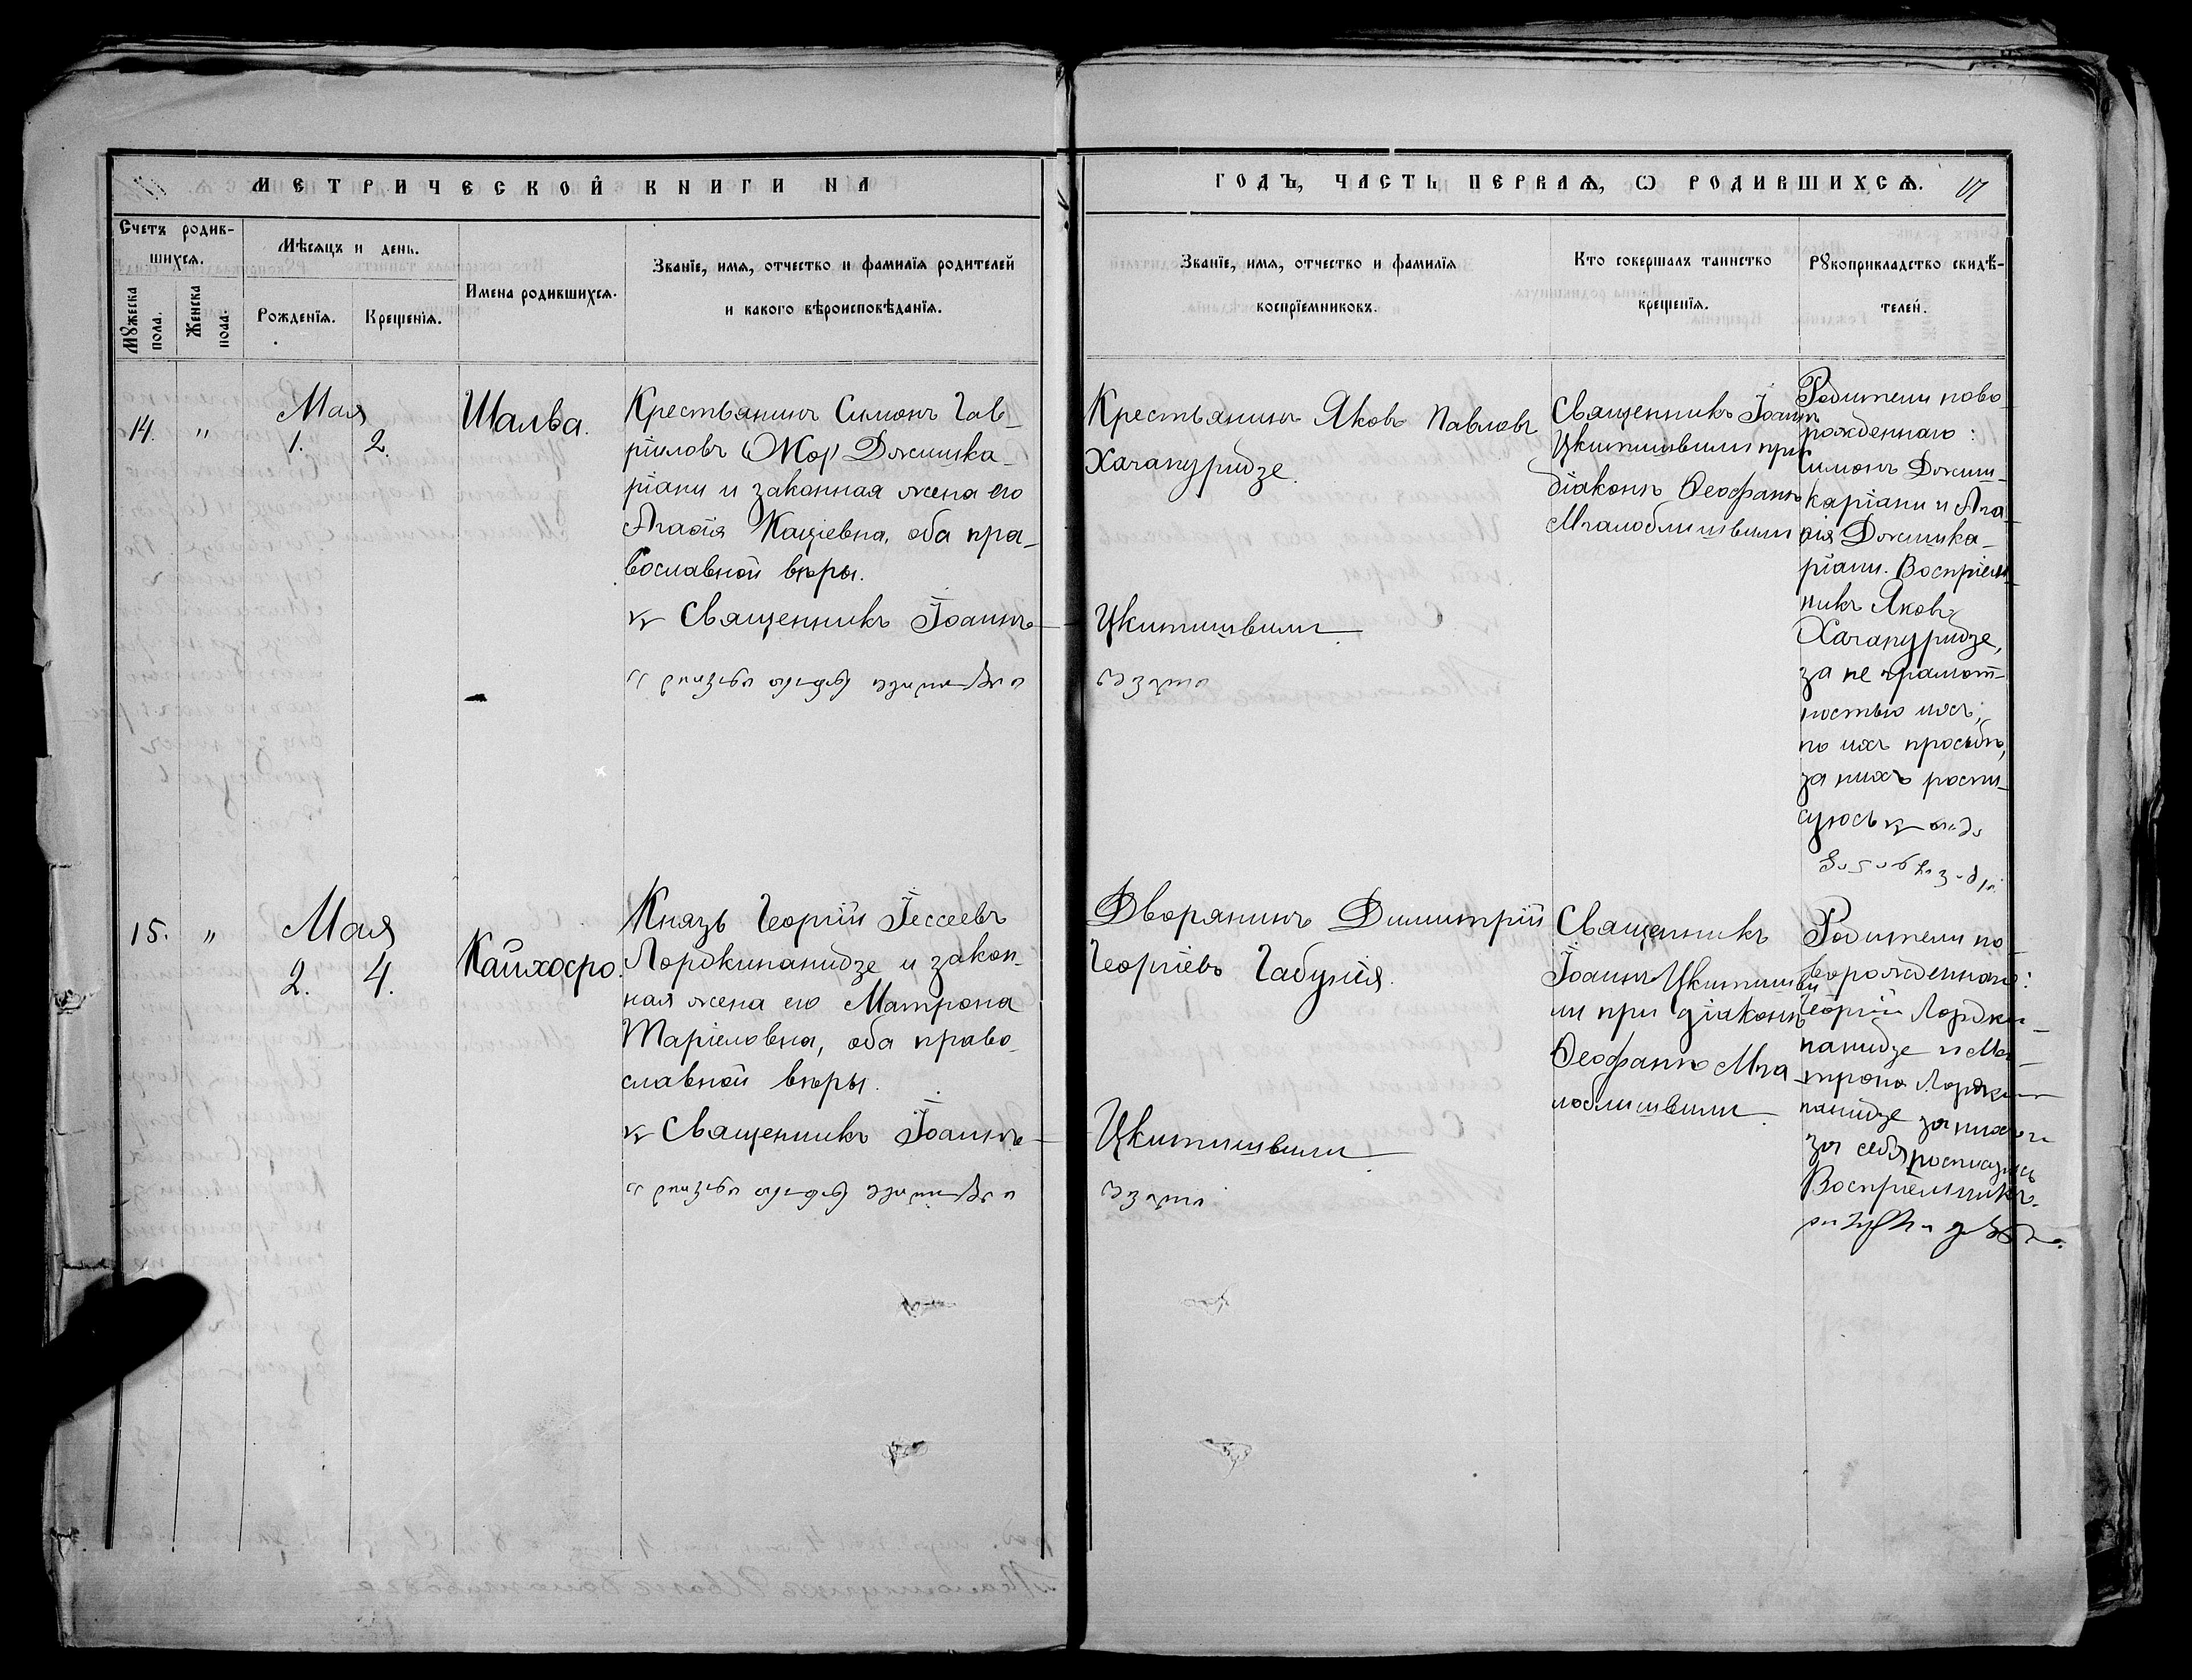 МЕТРИЧЕСКОЙ КНИГИ НА
ГОДЪ, ЧАСТЬ ПЕРВАѦ, Ѡ РОДИВШИХСѦ.
Счетъ родив-
шихсѧ.
Мꙋжеска
пола.
Женска
пола.
Мѣсѧцъ и день.
Рожденїѧ.
Крещенїѧ.
Имена родившихсѧ.
Званїе, имѧ, отчество и фамилїѧ родителей
и какого вѣроисповѣданїѧ.
Званїе, имѧ, отчество и фамилїѧ
воспрїемниковъ.
Кто совершалъ таинство
крещенїѧ.
Рꙋкоприкладство свидѣ-
телей.
14. " Мая
1. 2.
Шалва.
Крестьянинъ Симонъ Гав-
рииловъ Джишка-
ріани и законная жена его
Агаѳія Кациевна, оба пра-
вославной вѣры.
Священникъ Іоаннъ
Цкитишвили
Крестьянинъ Яковъ Павловъ
Хачапуридзе.
Священникъ Іоаннъ
Цкитишвили при
діаконѣ Ѳеофанѣ
Мгалоблишвили
Родители ново-
рожденнаго:
Симонъ Джиш-
каріани и Ага-
ѳія Джишка-
ріани. Воспріем-
никъ Яковъ
Хачапуридзе,
за не грамот-
ностью ихъ,
по ихъ просьбѣ,
за нихъ роспи-
суюсь
15. " Мая
2. 4.
Кайхосро.
Князь Георгій Іессеевъ
Лордкипанидзе и закон-
ная жена его Матрона
Таріеловна, оба право-
славной вѣры.
Священникъ Іоаннъ
Цкитишвили
Дворянинъ Димитрій
Георгіевъ Габунія.
Священникъ
Іоаннъ Цкитишви
ли при діаконѣ
Ѳеофанѣ Мга-
лоблишвили
Родители но-
ворожденнаго:
Георгій Лордки-
панидзе и Ма-
трона Лордки-
панидзе за нихъ и
за себя росписуюсь
Воспріемникъ.